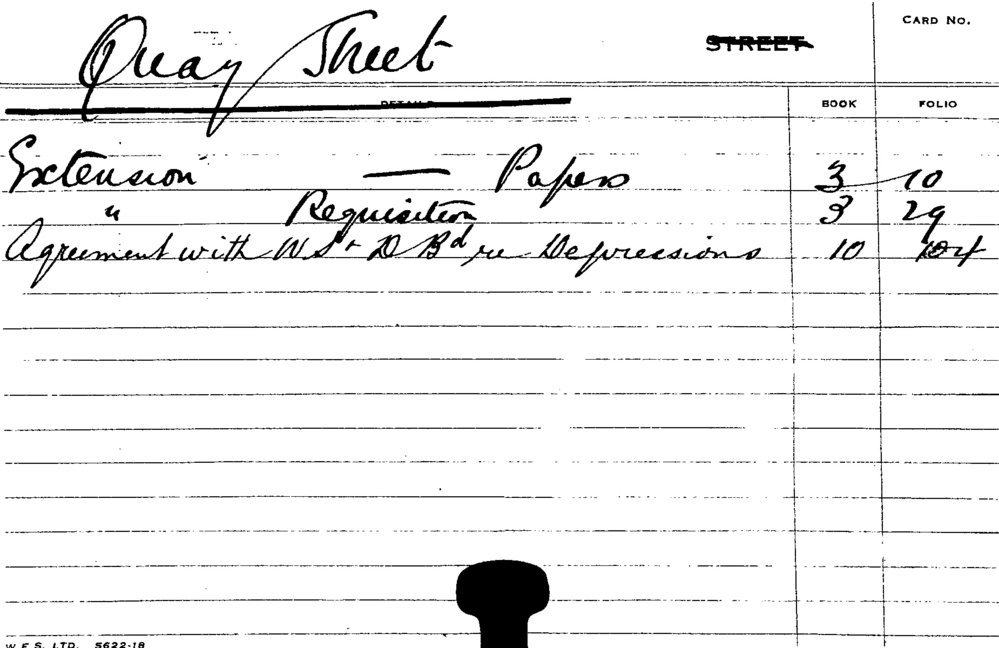 Quay Street STREET CARD No.
DETAILS BOOK FOLIO
Extension — Papers 3 10
" Requisition 3 29
Agreement with W S & D Bd re Depressions 10 104
W.F.S. LTD. 5622-18